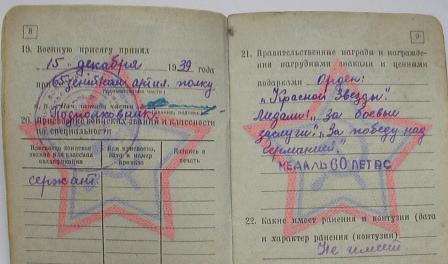 8
19. Военную присягу принял
15 „ декабря 1939 года
при 65 зенитном артил. полку
Подполковник
20. Присвоение воинского звания и классности
специальности
Присвоено воинское
звание или классная
квалификация
Кем присвоено,
дата и номер
приказа
Подпись и
печать
сержант.
9
21. Правительственные награды и награждения
нагрудными знаками и ценными
подарками Орден:
„Красной Звезды".
Медали: „За боевые
заслуги" „За победу над
Германией".
МЕДАЛЬ 60 ЛЕТ ВС
22. Какие имеет ранения и контузии (дата
и характер ранения (контузии)
Не имеет